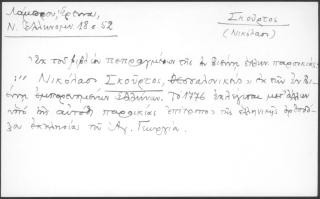 Λάμπρου, Σπυρ.
Ν. Ἑλληνομν. 18 σ 52
Σκοῦρτος
(Νικόλαος)
Ἐκ τοῦ βιβλίου πεπραγμένων τῆς ἐν Βιέννῃ ἑλλην. παροικίας
:" Νικόλαος Σκοῦρτος, Θεσσαλονικεὺς ἐκ τῶν ἐν Βι
έννῃ ἐμπορευομένων Ἑλλήνων. Τῷ 1776 ἐκλέγεται μετ' ἄλλων
ὑπὸ τῆς αὐτόθι παροικίας ἐπίτροπος τῆς ἑλληνικῆς ὀρθοδό
ξου ἐκκλησίας τοῦ Ἁγ. Γεωργίου.